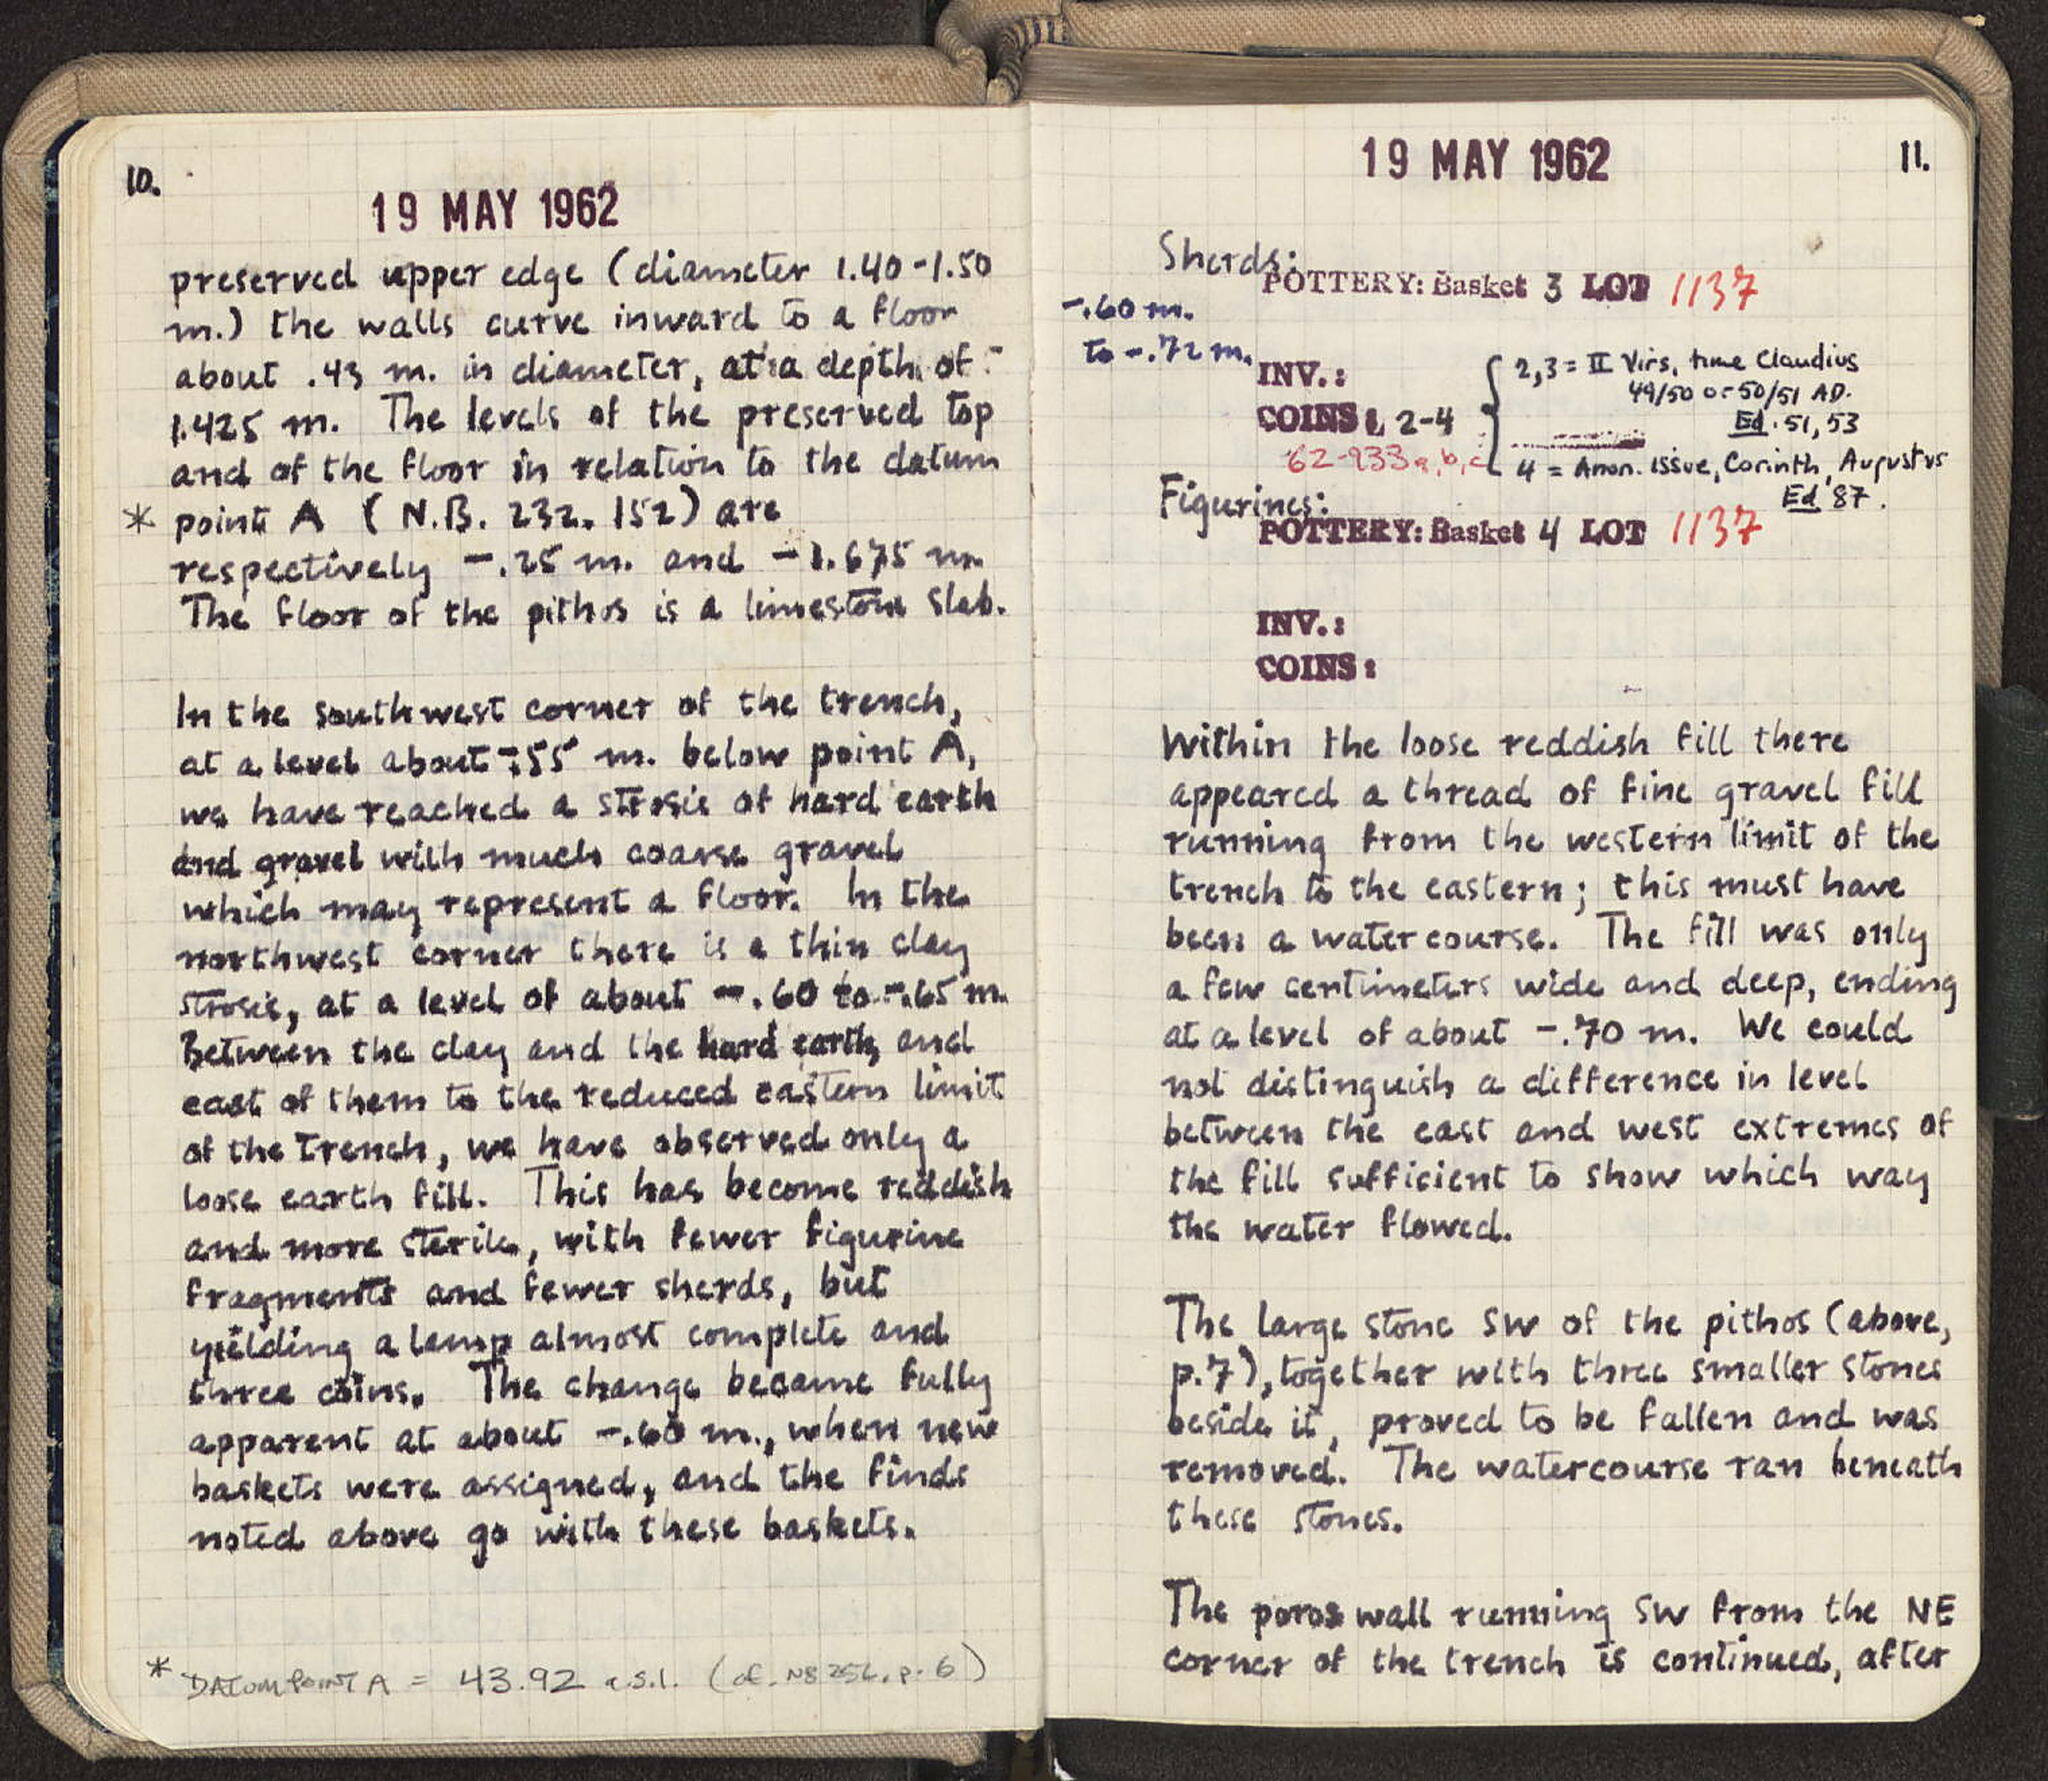 10.
19 MAY 1962
preserved upper edge (diameter 1.40-1.50
m.) the walls curve inward to a floor
about .43 m. in diameter, at a depth of
1.425 m. The levels of the preserved top
and of the floor in relation to the datum
* point A (N.B. 232. 152) are
respectively -.25 m. and -1.675 m.
The floor of the pithos is a limestone slab.
In the southwest corner of the trench,
at a level about -.55 m. below point A,
we have reached a strosis of hard earth
and gravel with much coarse gravel
which may represent a floor. In the
northwest corner there is a thin clay
strosis, at a level of about -.60 to -.65 m.
Between the clay and the hard earth, and
east of them to the reduced eastern limit
of the trench, we have observed only a
loose earth fill. This has become reddish
and more sterile, with fewer figurine
fragments and fewer sherds, but
yielding a lamp almost complete and
three coins. The change became fully
apparent at about -.60 m., when new
baskets were assigned, and the finds
noted above go with these baskets.
* DATUM POINT A = 43.92 a.s.l. (cf. NB 256, p. 6)
19 MAY 1962
11.
Sherds:
POTTERY: Basket 3 LOT 1137
-.60 m.
to -.72 m.
INV.:
COINS: 2-4
62-933 a, b, c
2,3 = II Virs, time Claudius
49/50 or 50/51 AD.
Ed. 51, 53
4 = Anon. issue, Corinth, Augustus
Ed 87.
Figurines:
POTTERY: Basket 4 LOT 1137
INV.:
COINS:
Within the loose reddish fill there
appeared a thread of fine gravel fill
running from the western limit of the
trench to the eastern; this must have
been a watercourse. The fill was only
a few centimeters wide and deep, ending
at a level of about -.70 m. We could
not distinguish a difference in level
between the east and west extremes of
the fill sufficient to show which way
the water flowed.
The large stone SW of the pithos (above,
p.7), together with three smaller stones
beside it, proved to be fallen and was
removed. The watercourse ran beneath
these stones.
The poros wall running SW from the NE
corner of the trench is continued, after